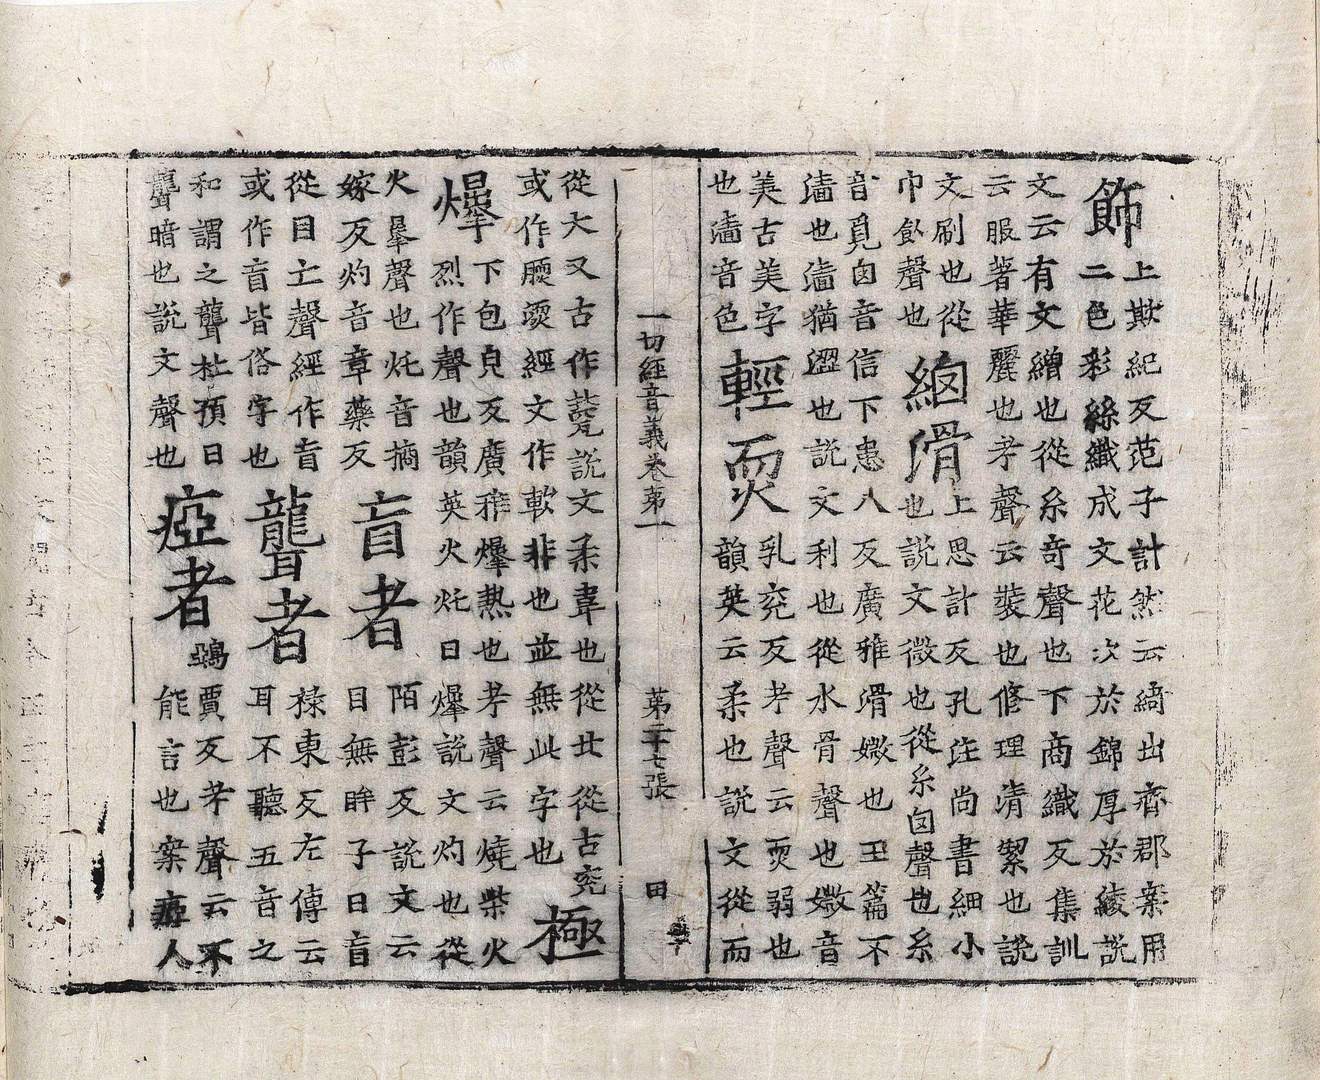 飾
上欺紀反范子計然云綺出齊郡案用
二色彩絲織成文花次於錦厚於綾說
文云有文繒也從糸奇聲也下商織反集訓
云服著華麗也考聲云裝也修理清絜也說
文刷也從
巾飤聲也
細滑
上思計反孔注尚書細小
也說文微也從糸囟聲也糸
音覓囟音信下患八反廣雅滑媺也王篇不
濇也濇猶澀也說文利也從水骨聲也媺音
美古美字
也濇音色
輕耎
乳兖反考聲云耎弱也
韻英云柔也說文從而
一切經音義卷第一　第二十七張　田
從大又古作㼱說文柔韋也從北從古兖
或作腝渜經文作軟非也並無此字也
極
爆
下包皃反廣雅爆熱也考聲云燒柴火
烈作聲也韻英火灹曰爆說文灼也從
火暴聲也灹音摘
嫁反灼音章藥反
盲者
陌彭反說文云
目無眸子曰盲
從目亡聲經作盲
或作盲皆俗字也
聾者
祿東反左傳云
耳不聽五音之
和謂之聾杜預曰
聾暗也說文聲也
瘂者
鵶賈反考聲云不
能言也案瘂人